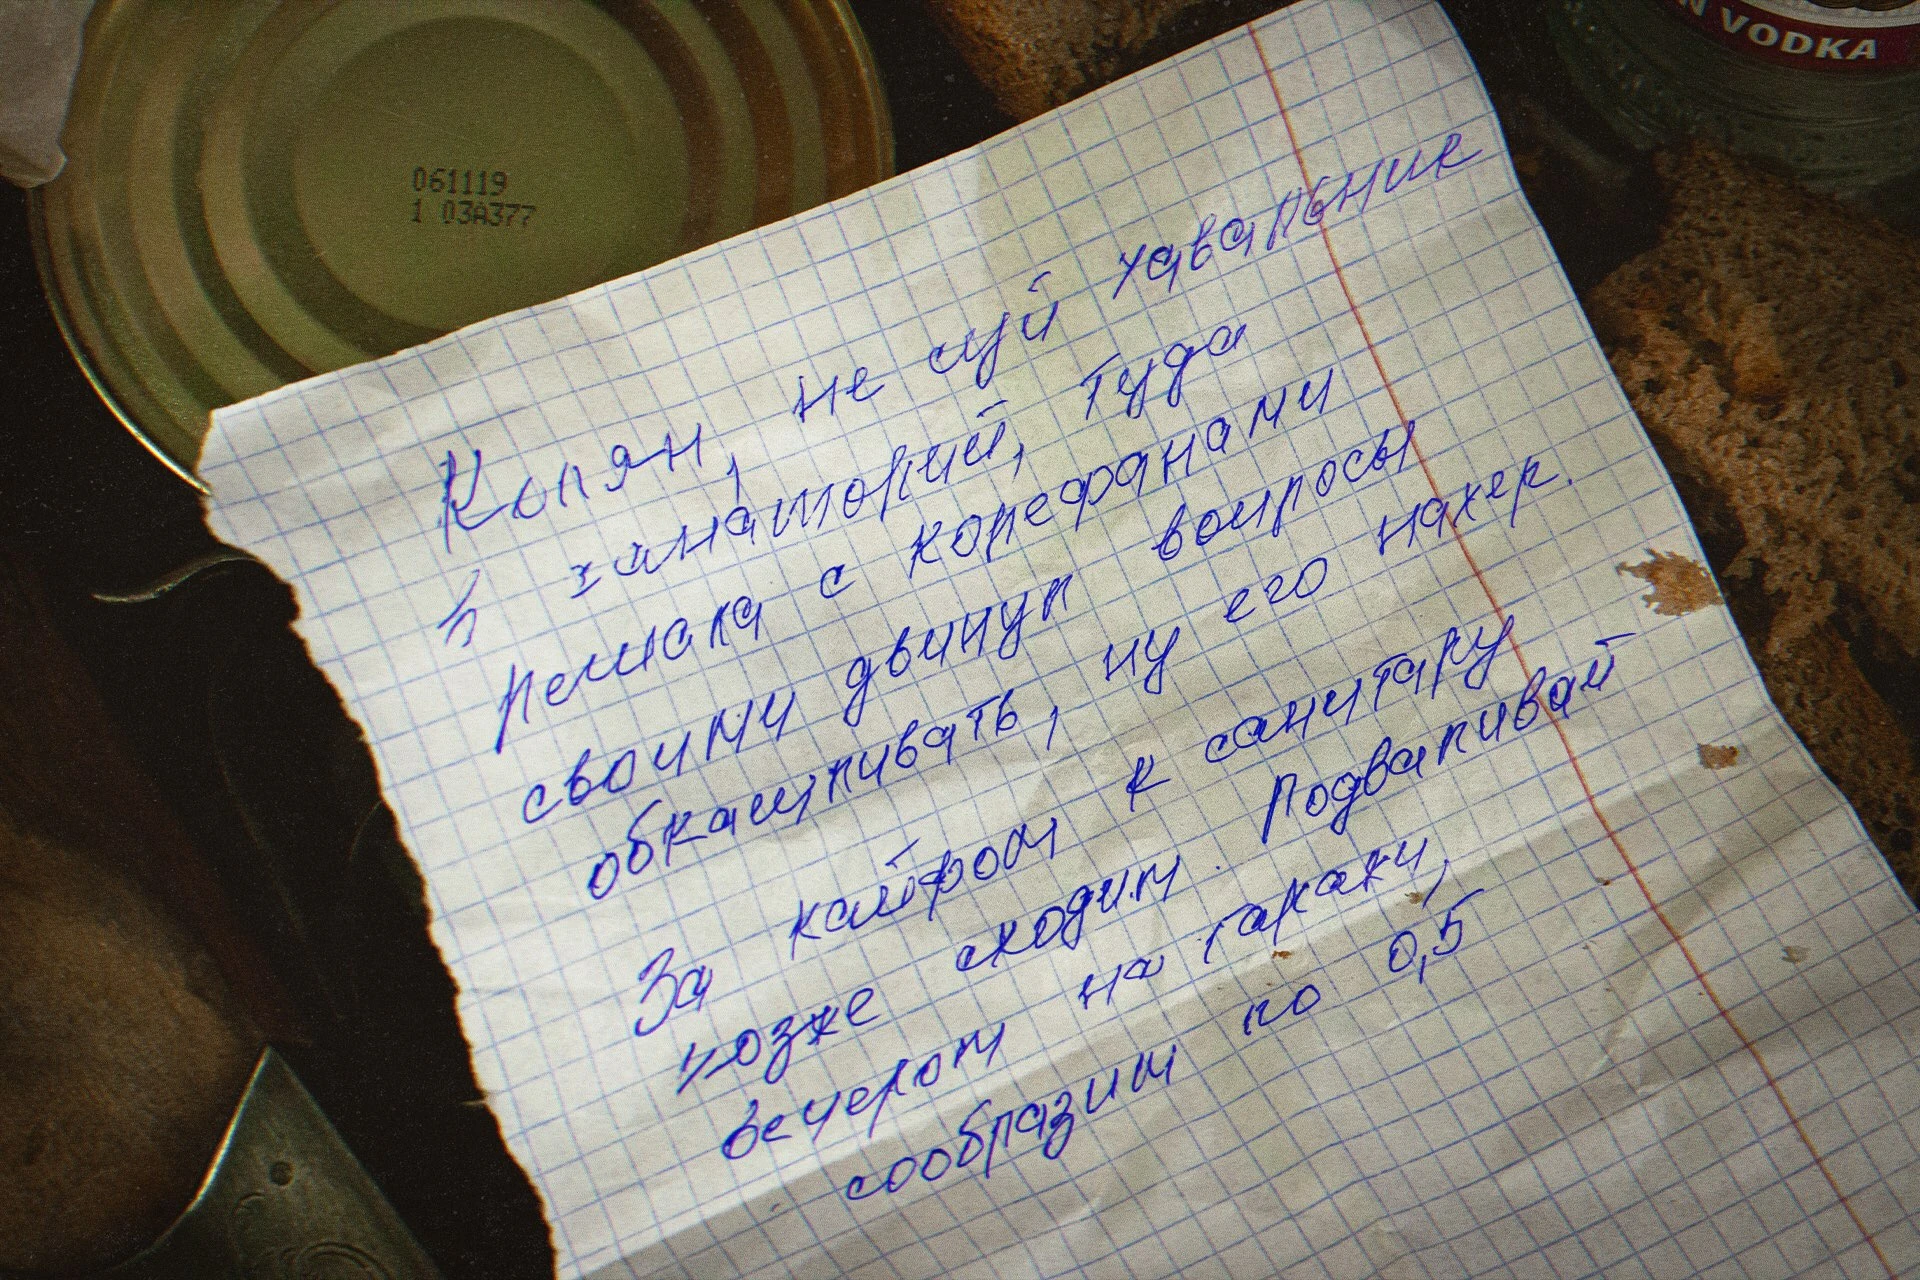 061119
1 03А377
N VODKA
Колян, не суй хавальник
в санаторий, туда
Лешака с корефанами
своими двинул вопросы
обкашливать, ну его нахер.
За кайфом к санитару
позже сходим. Подваливай
вечером на гаражи,
сообразим по 0,5